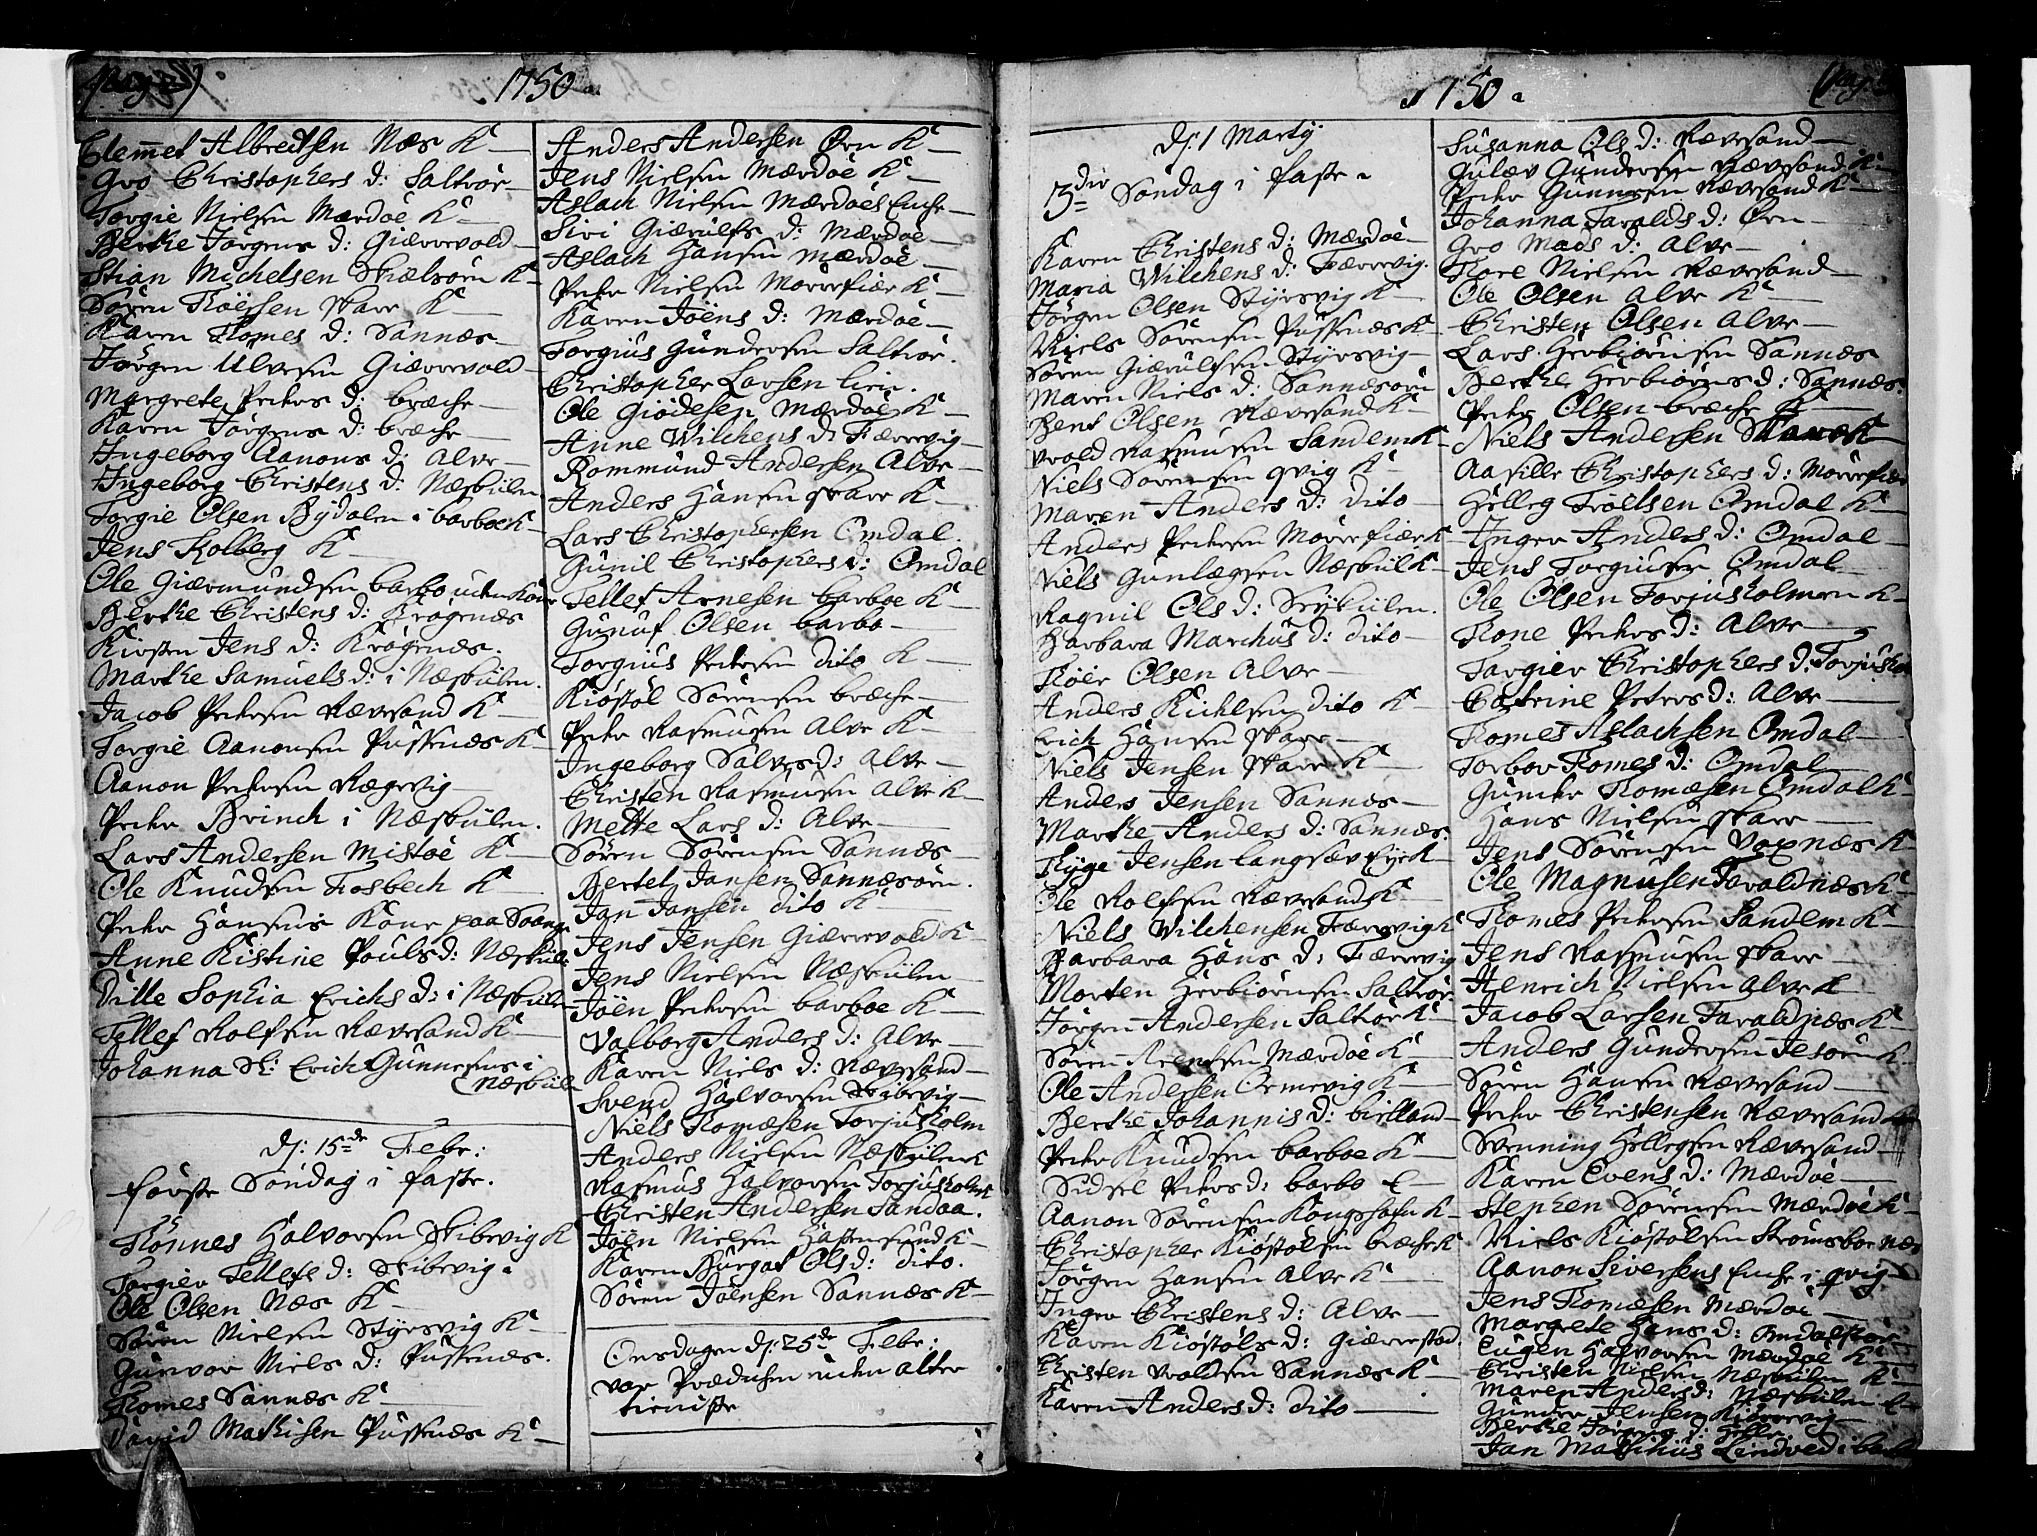 1750
Clemmet Albrectsen Næs K
Gro Christophers d: Saltrör
Torgie Nielsen Mærdøe K
Berthe Jørgens d: Giærrevold
Stian Michelsen Skielsöen K
Sören Thöersen Skarr K
Karen Thomes d: Sannæs
Jörgen Ulvesen Giærrevold
Margrete Peders d: bræche
Karen Jörgens d: bræche
Ingeborg Aanons d: Alve
Ingeborg Christens d: Næskilen
Torgie Olsen Bÿdalen i barboe K
Jens Kolberg K
Ole Giærmundsen barbo uden Kone
Berthe Christens d: Krogenæs
Kirsten Jens d: Krögenæs.
Marthe Samuels d: i Næskilen.
Jacob Pedersen Rævesand K
Torgie Aanonsen Pusnæs K
Aanon Pedersen Rægevig
Peder Brinch i Næskilen.
Lars Andersen Mistøe K
Ole Knudsen Fosbech K
Peder Hansens Kone paa
Anne Kistine Pouls d: Næskil
Sophia Erichs d: i Næskilen
Tellef Rolfsen Rævesand K
Johanna Sl: Erich Gunnersens i
Næskilen
Ds: 15de Febr:
första Söndag i faste.
Thönnes Halvorsen Skibevig K
Torgier Tellefs d: Skibevig
Ole Olsen Næs K
Sören Nielsen Stÿrsvig K
Gunvor Niels d: Pusnæs.
Thomes Sannæs K
David Mathisen Pusnæs K
Anders Andersen Örn K
Jens Nielsen Mærdöe K
Aslach Nielsen Mærdöes Enche
Siri Giærulfs d: Mærdöe
Aslach Hansen Mærdöe
Peder Nielsen Morrefiær K
Karen Jöens d: Mærdöe
Torgius Gundersen Saltrör.
Christopher Larsen
Ole Giödesen Mærdöe K
Anne Wilchens d: Færrevig
Rommund Andersen Alve
Anders Hansen Skarr K
Lars Christophersen Omdal.
Gunil Christophers d: Omdal
Tellef Arnesen barboe K
Gunuf Olsen barbo
Torgius Pedersen dito K
Kiöstol Sörensen bræche
Peder Rasmusen Alve K
Ingeborg Salves d: Alve
Christen Rasmusen Alve K
Mette Lars d: Alve
Sören Sörensen Sannæs
Bertel Jansen Sannæsöen.
Jan Jansen dito K
Jens Jensen Giærrevold K
Jens Nielsen Næskilen
Jöen Pedersen barboe K
Valborg Anders d: Alve
Karen Niels d: Rævesand
Svend Halvorsen Skibevig
Niels Thomesen Torjusholm
Anders Nielsen Næskilen K
Rasmus Halvorsen Torjusholm K
Christen Andersen Sandaa.
Jöen Nielsen Hastensund K
Karen Burgat Ols d: dito.
Sören Jöensen Sannæs K
Onsdagen ds: 25de Febr:
var Prædichen uden alter
tieniste
1750
Ds: 1 Martÿ
3die Söndag i faste
Karen Christens d: Mærdöe
Maria Wilchens d: Færrevig.
Jörgen Olsen Stÿrsvig K
Niels Sörensen Pusnæs K
Sören Giærulfsen Stÿrsvig
Maren Niels d: Sannæsöen
Bent Olsen Rævesand K
Vrold Rasmusen Sandem K
Niels Sörensen qvig K
Maren Anders d: dito
Anders Pedersen Morrefiær K
Niels Gunlagsen Næskil K
Ragnil Ols d:
Barbara Marchus d: dito
Thöer Olsen Alve
Anders Kichlsen dito K
Erich Hansen Skarr
Niels Jensen Skarr K
Anders Jensen Sannæs
Marthe Anders d: Sannæs.
Thÿge Jensen Langsæv Eÿe K
Ole Rolfsen Rævesand K
Niels Wilchensen Færrevig K
Barbara Hans d: Færrevig
Morten Herbiörnsen Saltrör
Jörgen Andersen Saltrör K
Sören Reersen Mærdöe K
Ole Andersen Ormevig K
Berthe Johannis d: birkland
Peder Knudsen barboe K
Sidsel Peders d: barbo
Aanon Sörensen Kongshafn K
Christopher Kiöstolsen bræche K
Jörgen Hansen Alve K
Inger Christens d: Alve
Karen Kiöstols d: Giærrestad.
Christen Vroldsen Sannæs K
Karen Anders d: dito
Susanna Ols d: Rævesand
Gulæv Gundersen Rævesand K
Peder Gunnersen Rævesand K
Johanna Taralds d: Örn
Gro Mads d: Alve
Thore Nielsen Rævesand
Ole Olsen Alve K
Christen Olsen Alve
Lars Herbiörnsen Sannæs
Berthe Herbiörns d: Sannæs
Peder Olsen bræche K
Niels Andersen Skarr K
Aasille Christophers d: Morrefiær
Helleg Troelsen Omdal K
Inger Anders d: Omdal
Jens Torgiusen Omdal
Ole Olsen Torjusholmen K
Thone Peders d: Alve
Torgier Christophers d: Torjushol
Catrine Peters d: Alve
Thomes Aslachsen Omdal
Torbor Thomes d: Omdal
Gunder Thomesen Omdal K
Hans Nielsen Skarr
Jens Sörensen Voxnæs K
Ole Magnusen Taraldnæs K
Thomes Pedersen Sandem K
Jens Rasmusen Skarr
Henrich Nielsen Alve K
Jacob Larsen Taraldnæs K
Anders Gundersen Jesöen K
Sören Hansen Rævesand
Peder Christensen Rævesand
Svenning Hellegsen Rævesand
Karen Evens d: Mærdöe
Stephen Sörensen Mærdöe K
Niels Kiöstolsen Strömsboenæs
Aanon Siversens Enche i qvig
Jens Thomesen Mærdöe
Margrete Hans d: Omdal
Eugen Halvorsen Mærdöe K
Christen Nielsen Næskilen K
Maren Anders d: Næskilen
Gunder Jensen Kiörrevig
Berthe Jörgens d: Helle
Jan Mathius Lindved i barb